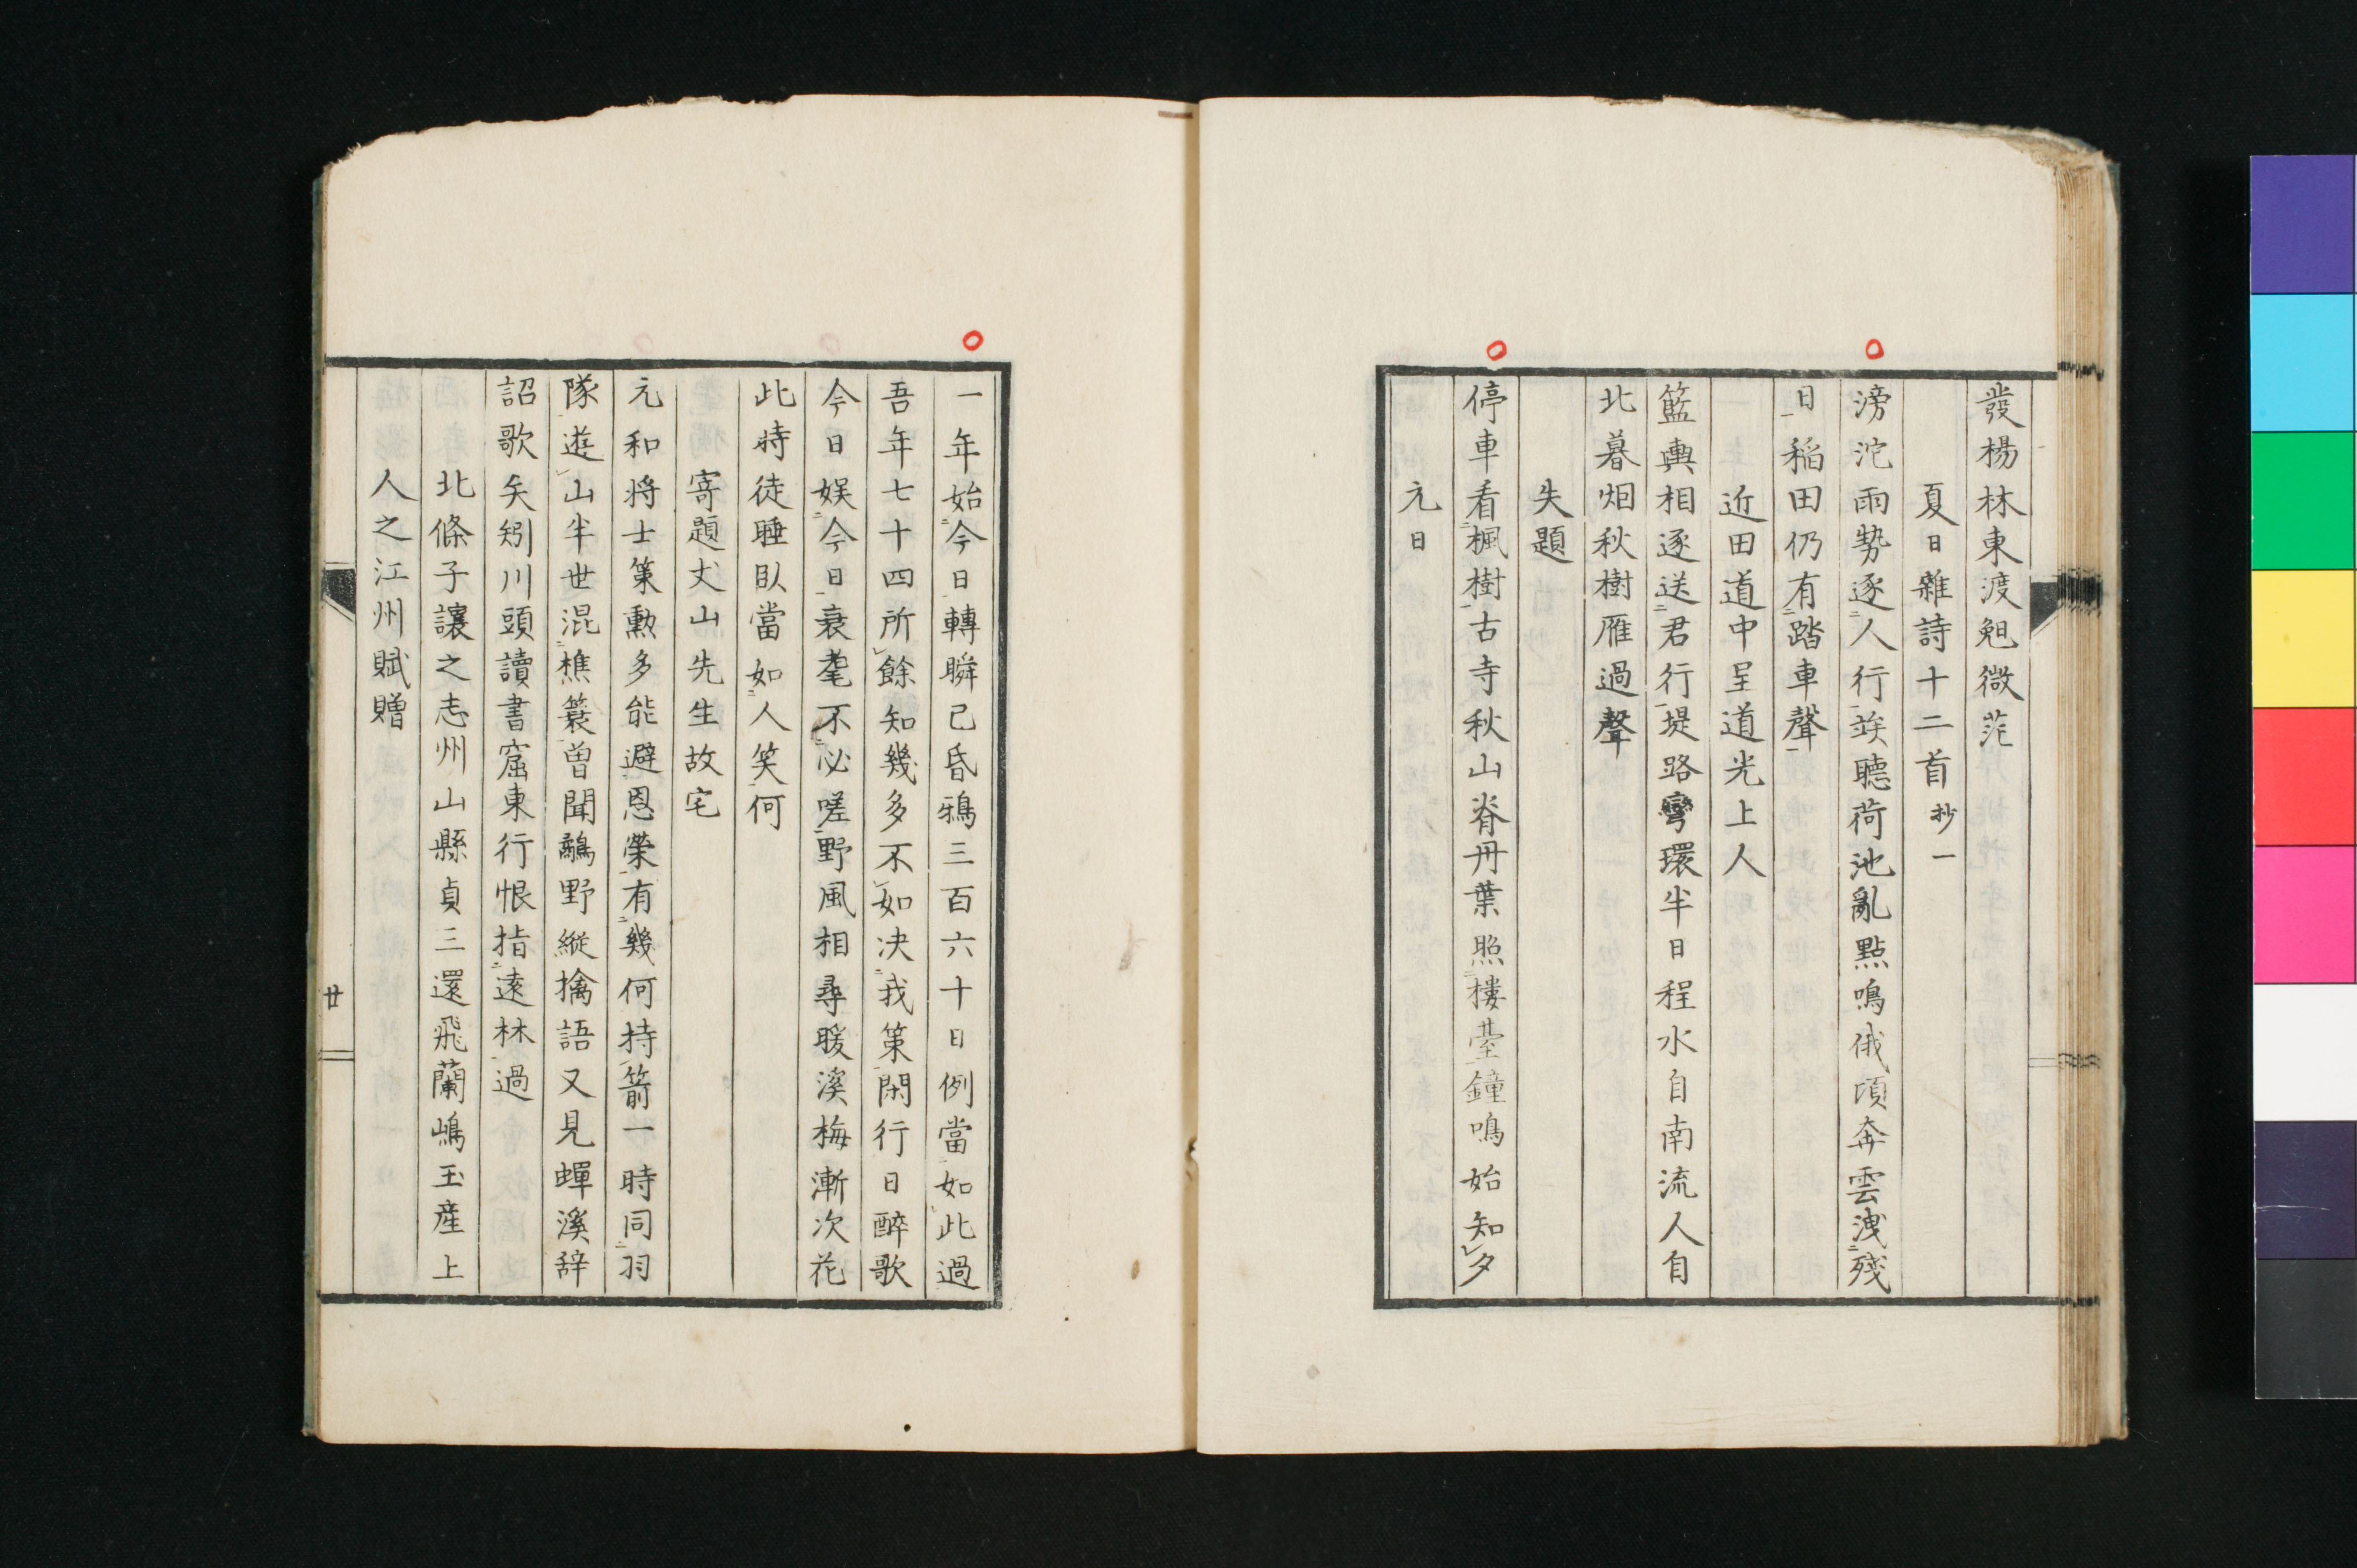 發楊林東渡兔微茫
夏日雜詩十二首抄一
滂沱雨勢逐人行竢聽荷池亂點鳴俄頃奔雲洩殘
日稲田仍有踏車聲
近田道中呈道光上人
籃輿相逐送君行堤路彎環半日程水自南流人自
北暮烟秋樹雁過聲
失題
停車看楓樹古寺秋山脊丹葉照楼臺鐘鳴始知夕
元日
一年始今日轉瞬已昏鴉三百六十日例當如此過
吾年七十四所餘知幾多不如决我策閑行日醉歌
今日娱今日衰耄不必嗟野風相尋暖溪梅漸次花
此時徒睡臥當如人笑何
寄題丈山先生故宅
元和将士策勲多能避恩榮有幾何持箭一時同羽
隊遊山半世混樵蓑曽聞鷸野縦擒語又見蟬溪辞
詔歌矣矧川頭讀書窟東行恨指遠林過
北條子讓之志州山縣貞三還飛蘭嶋玉産上
人之江州賦贈
廿